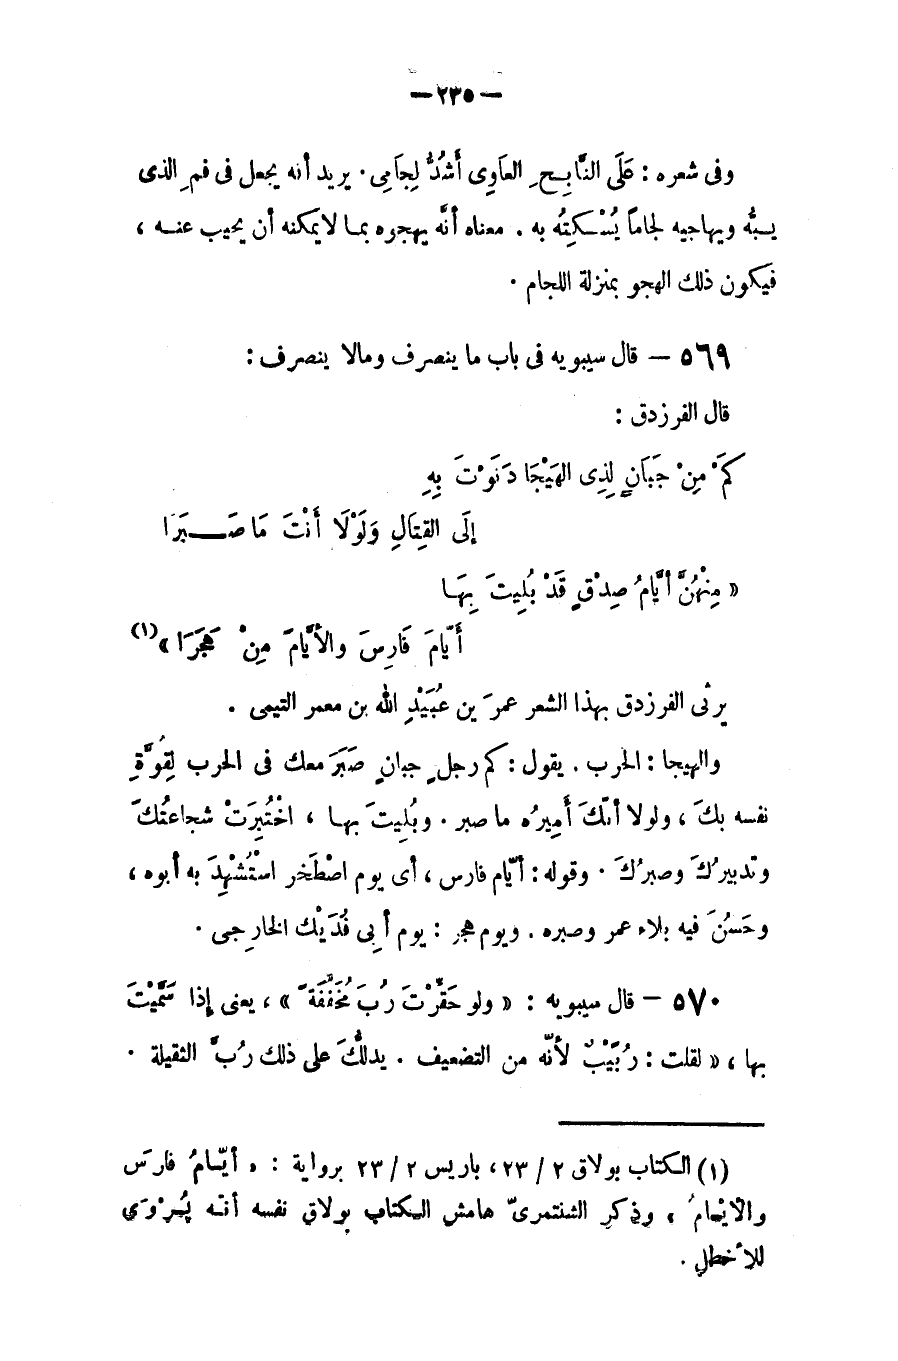 — ٢٣٥ —
وفى شعره : عَلَى النَّابِحِ العَاوِى أَشَدُّ لِجَامِى . يريد أنه يجعل فى فمِ الذى
يسبُّه ويهاجيه لجاماً يُسْكِتُه به . معناه أنَّه يهجوه بما لايمكنه أن يجيب عنه ،
فيكون ذلك الهجو بمنزلة اللجام .
٥٦٩ — قال سيبويه فى باب ما ينصرف ومالا ينصرف :
قال الفرزدق :
كَمْ مِنْ جَبَانٍ لِذِى الهَيْجَا دَنَوْتَ بِهِ
إلَى القِتَالِ وَلَوْلَا أَنْتَ مَا صَبَرَا
« مِنْهُنَّ أيَّامُ صِدْقٍ قَدْ بُلِيتَ بِهَا
أَيَّامَ فَارِسَ والأَيَّامَ مِنْ هَجَرَا »(١)
يرثى الفرزدق بهذا الشعر عمرَ بن عُبَيْدِ الله بن معمر التيمى .
والهيجا : الحرب . يقول : كم رجلٍ جبانٍ صَبَرَ معك فى الحرب لِقُوَّةِ
نفسه بكَ ، ولولا أنّكَ أَمِيرُه ما صبر . وبُلِيتَ بها ، اخْتُبِرَتْ شجاعتُكَ
وتدبيرُكَ وصبرُكَ . وقوله : أيّام فارس ، أى يوم اصْطَخر اسْتُشْهِدَ به أبوه ،
وحَسُنَ فيه بلاء عمر وصبره . ويوم هجر : يوم أبِى فُدَيْك الخارجى .
٥٧٠ — قال سيبويه : « ولو حَقَّرْتَ رُبَ مُخَفَّفَةً » ، يعنى إذا سَمَّيْتَ
بها ، « لقلت : رُبَيْبٌ لأنّه من التضعيف . يدلّكَ على ذلك رُبَّ الثقيلة .
(١) الكتاب بولاق ٢ / ٢٣ ، باريس ٢ / ٢٣ برواية : « أيّامُ فارسَ
والأيّامُ » وذكر الشنتمرىّ هامش الكتاب بولاق نفسه أنّه يُرْوَى
للأخطل .